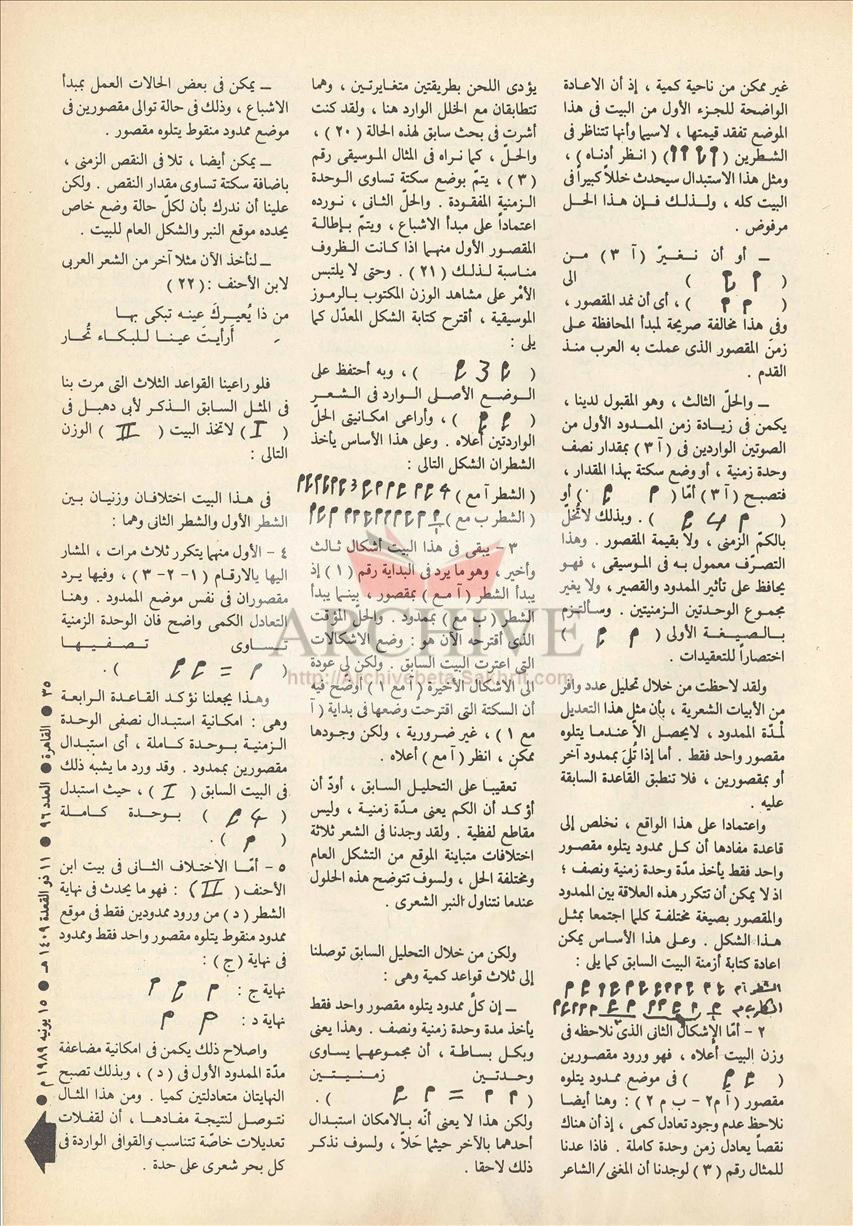 غير ممكن من ناحية كمية ، إذ أن الاعادة
الواضحة للجزء الأول من البيت فى هذا
الموضع تفقد قيمتها ، لاسيما وأنها تتناظر فى
الشطرين ( ) ( انظر أدناه ) ،
ومثل هذا الاستبدال سيحدث خللاً كبيراً فى
البيت كله ، ولـذلـك فـإن هـذا الحـل
مرفوض .
ــ أو أن نـغـيّر ( آ ٣ ) مـن
( ) الى
( ) ، أى أن نمد المقصور ،
وفى هذا مخالفة صريحة لمبدأ المحافظة على
زمن المقصور الذى عملت به العرب منذ
القدم .
ــ والحلّ الثالث ، وهو المقبول لدينا ،
يكمن فى زيـادة زمن الممـدود الأول من
الصوتين الواردين فى ( آ ٣ ) بمقدار نصف
وحدة زمنية ، أو وضع سكتة بهذا المقدار ،
فتصبـح ( آ ٣ ) امّا ( ) أو
( ) . وبذلك لاتُخلّ
بالكمّ الزمنى ، ولا بقيمة المقصور . وهذا
التصرّف معمول بـه فى الموسيقى ، فهـو
يحافظ على تأثير الممدود والقصير ، ولا يغير
مجموع الوحدتين الزمنيتين . وسـألتـزم
بـالصيـغـة الأولى ( )
اختصاراً للتعقيدات .
ولقد لاحظت من خلال تحليل عدد وافر
من الأبيات الشعرية ، بأن مثل هذا التعديل
لمدّة الممدود ، لايحصل الّا عندما يتلوه
مقصور واحد فقط . أما إذا تُلىَ بممدود آخر
أو بمقصورين ، فلا تنطبق القاعدة السابقة
عليه .
واعتمادا على هذا الواقع ، نخلص إلى
قاعدة مفادها أن كـل ممدود يتلوه مقصور
واحد فقط يأخذ مدّة وحدة زمنية ونصف ؛
اذ لا يمكن أن تتكرر هذه العلاقة بين الممدود
والمقصور بصيغة مختلفـة كلما اجتمعا بمثـل
هـذا الشكل . وعـلى هذا الأسـاس يمكن
اعادة كتابة أزمنة البيت السابق كما يلى :
٢ - أمّا الإشكال الثانى الذى نلاحظه فى
وزن البيت أعلاه ، فهو ورود مقصورين
( ) فى موضع ممـدود يتلوه
مقصور ( آ م٢ - ب م ٢ ) : وهنا أيضا
نلاحظ عدم وجود تعادل كمى ، إذ أن هناك
نقصاً يعادل زمن وحدة كاملة . فاذا عدنا
للمثال رقم ( ٣ ) لوجدنا أن المغنى/الشاعر
يؤدى اللحن بطريقتين متغايرتين ، وهما
تتطابقان مع الخلل الوارد هنا ، ولقد كنت
أشرت فى بحث سابق لهذه الحالة ( ٢٠ ) ،
والحـلّ ، كما نراه فى المثال الموسيقى رقم
( ٣ ) ، يتمّ بوضع سكتة تساوى الـوحدة
الزمنية المفقودة . والحلّ الثانى ، نورده
اعتماداً على مبدأ الاشباع ، ويتمّ بـإطالـة
المقصور الأول منهـا اذا كـانت الظروف
مناسبة لـذلـك ( ٢١ ) . وحتى لا يلتبس
الأمْر على مشاهد الوزن المكتوب بـالرمـوز
الموسيقية ، أقترح كتابة الشكل المعدّل كما
يلى :
( ) ، وبه أحتفظ على
الـوضـع الأصـلى الـوارد فى الـشعـر
( ) ، وأراعى امكـانيتى الحلّ
الواردتين أعلاه . وعلى هذا الأساس يأخذ
الشطران الشكل التالى :
( الشطر آ مع )
( الشطر ب مع )
٣ - يبقى فى هذا البيت أشكال ثالث
وأخير ، وهو ما يرد فى البداية رقم ( ١ ) إذ
يبدأ الشطر ( آ مـع ) بمقصور ، بينـما يبدأ
الشطر ( ب مع ) بممدود . والحلّ المؤقت
الذى أقترحه الآن هو : وضع الاشكالات
التى اعترت البيت السابق . ولكن لى عودة
الى الأشكال الأخيرة ( آ مع ١ ) أوضح فيه
أن السكتة التى اقترحت وضعها فى بداية ( آ
مع ١ ) ، غير ضرورية ، ولكن وجودها
ممكن ، انظر ( آ مع ) أعلاه .
تعقيبـا على التحليـل السابق ، أودّ أن
أؤكد أن الكم يعنى مـدّة زمنية ، وليس
مقاطع لفظية . ولقد وجدنا فى الشعر ثلاثة
اختلافات متباينة الموقع من التشكل العام
ومختلفة الحل ، ولسوف تتوضح هذه الحلول
عندما نتناول النبر الشعرى .
ولكن من خلال التحليل السابق توصلنا
إلى ثلاث قواعد كمية وهى :
ــ إن كلّ ممدود يتلوه مقصور واحد فقط
يأخذ مدة وحدة زمنية ونصف . وهذا يعنى
وبكـل بساطـة ، أن مجمـوعهـما يسـاوى
وحـدتـين زمـنـيـتـين
( = ) .
ولكن هذا لا يعنى أنّه بالامكان استبدال
أحدهما بالآخر حيثما حَلّا ، ولسوف نذكر
ذلك لاحقا .
ــ يمكن فى بعض الحالات العمل بمبدأ
الاشباع ، وذلك فى حالة توالى مقصورين فى
موضع ممدود منقوط يتلوه مقصور .
ــ يمكن أيضا ، تلا فى النقص الزمنى ،
باضافة سكتة تساوى مقدار النقص . ولكن
علينا أن ندرك بأن لكلّ حالة وضع خاص
يحدده موقع النبر والشكل العام للبيت .
ــ لنأخذ الآن مثلا آخر من الشعر العربى
لابن الأحنف : ( ٢٢ )
من ذا يُعيـركَ عينه تبكى بهـا
أرأيتَ عينـا للبكـاء تُعـار
فلو راعينا القواعد الثلاث التى مرت بنا
فى المثـل السابق الـذكـر لأبى دهبـل فى
( I ) لاتخذ البيت ( II ) الوزن
التالى :
فى هـذا البيت اختلافـان وزنيـان بين
الشطر الأول والشطر الثانى وهما :
٤ - الأول منهما يتكرر ثلاث مرات ، المشار
اليها بالارقـام ( ١ - ٢ - ٣ ) ، وفيها يـرد
مقصوران فى نفس موضع الممدود . وهنـا
التعادل الكمى واضح فان الوحدة الزمنية
تـسـاوى نـصـفـيـهـا
( = ) .
وهـذا يجعلنا نؤكـد القـاعـدة الـرابعـة
وهى : امكانية استبدال نصفى الوحدة
الزمنية بـوحـدة كـاملة ، أى استبدال
مقصورين بممدود . وقد ورد ما يشبه ذلك
فى البيت السابق ( I ) ، حيث استبدل
( ) بـوحـدة كـامـلة
( ) .
٥ - أمّـا الأختـلاف الثـانى فى بيت ابن
الأحنف ( II ) : فهو ما يحدث فى نهاية
الشطر ( د ) من ورود ممدودين فقط فى موقع
ممدود منقوط يتلوه مقصور واحد فقط وممدود
فى نهاية ( ج ) :
نهاية ج :
نهاية د :
واصلاح ذلك يكمن فى امكانية مضاعفة
مدّة الممدود الأول فى ( د ) ، وبذلك تصبح
النهايتان متعادلتين كميا . ومن هذا المثـال
نتـوصـل لنتيجـة مفـادهـا ، أن لقفـلات
تعديلات خاصّة تتناسب والقوافى الواردة فى
كل بحر شعرى على حدة .
٣٥ ● القاهرة ● العدد ٩٦ ● ١١ ذو القعدة ١٤٠٩ هـ ● ١٥ يونيه ١٩٨٩ م ●
ARCHIVE
http://Archivebeta.Sakhrit.com